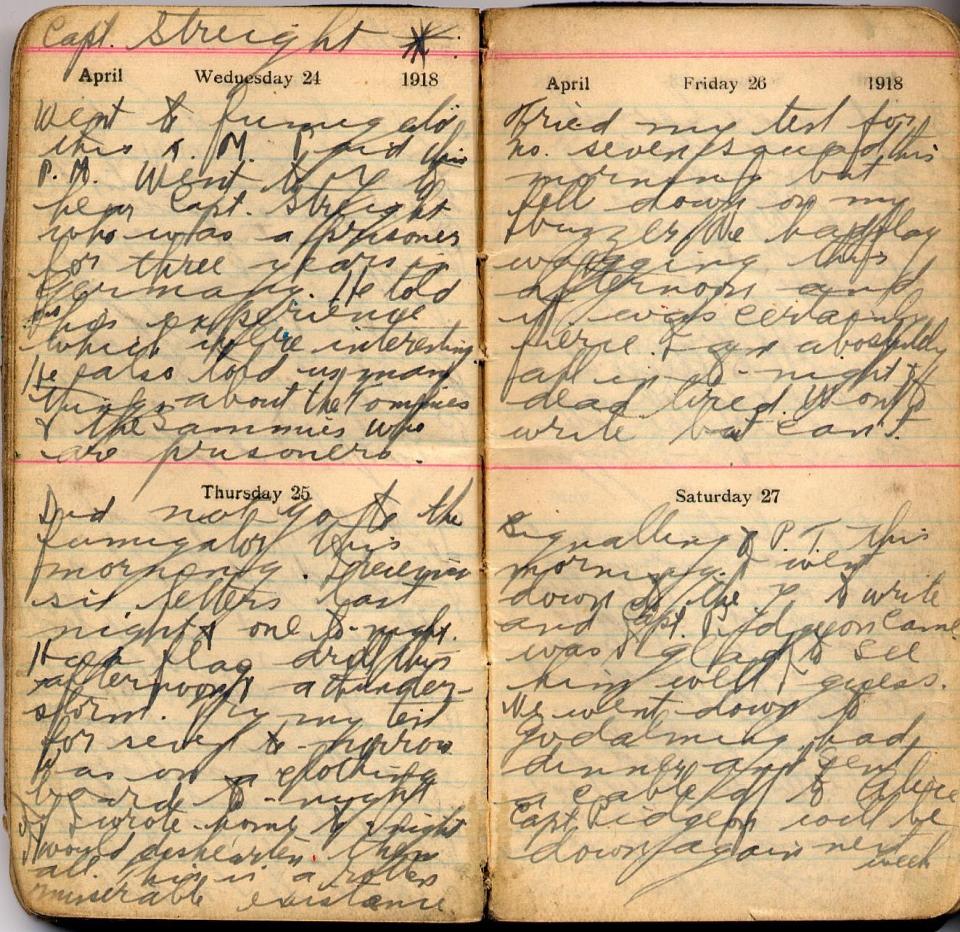 Capt. Streight
April Wednesday 24 1918
Went to fumigator
this A. M. Paid this
P. M. Went to Y to
hear Capt. Streight
who was a prisoner
for three years in
Germany. He told
his experience
which were interesting
He also told us many
things about the Tommies
& the Sammies who
are prisoners.
Thursday 25
Did not go to the
fumigator this
morning. I received
six letters last
night & one to-night.
Had flag drill this
afternoon, a thunder-
storm. Try my test
for seven to-morrow
Was on a clothing
board to-night
If I wrote home to-night
would dishearten them
all. This is a rotten
miserable existence.
April Friday 26 1918
Tried my test for
no. seven squad this
morning but
fell down on my
buzzer. We had flag
wagging this
afternoon and
it was certainly
fierce. I am absolutely
all in to-night &
dead tired. Want to
write but can't.
Saturday 27
Signalling & P. T. this
morning. I went
down to the Y to write
and Capt. Pidgeon came
was I glad to see
him well I guess.
We went down to
Godalming had
dinner and sent
a cable to
Capt. Pidgeon will be
down again next
week